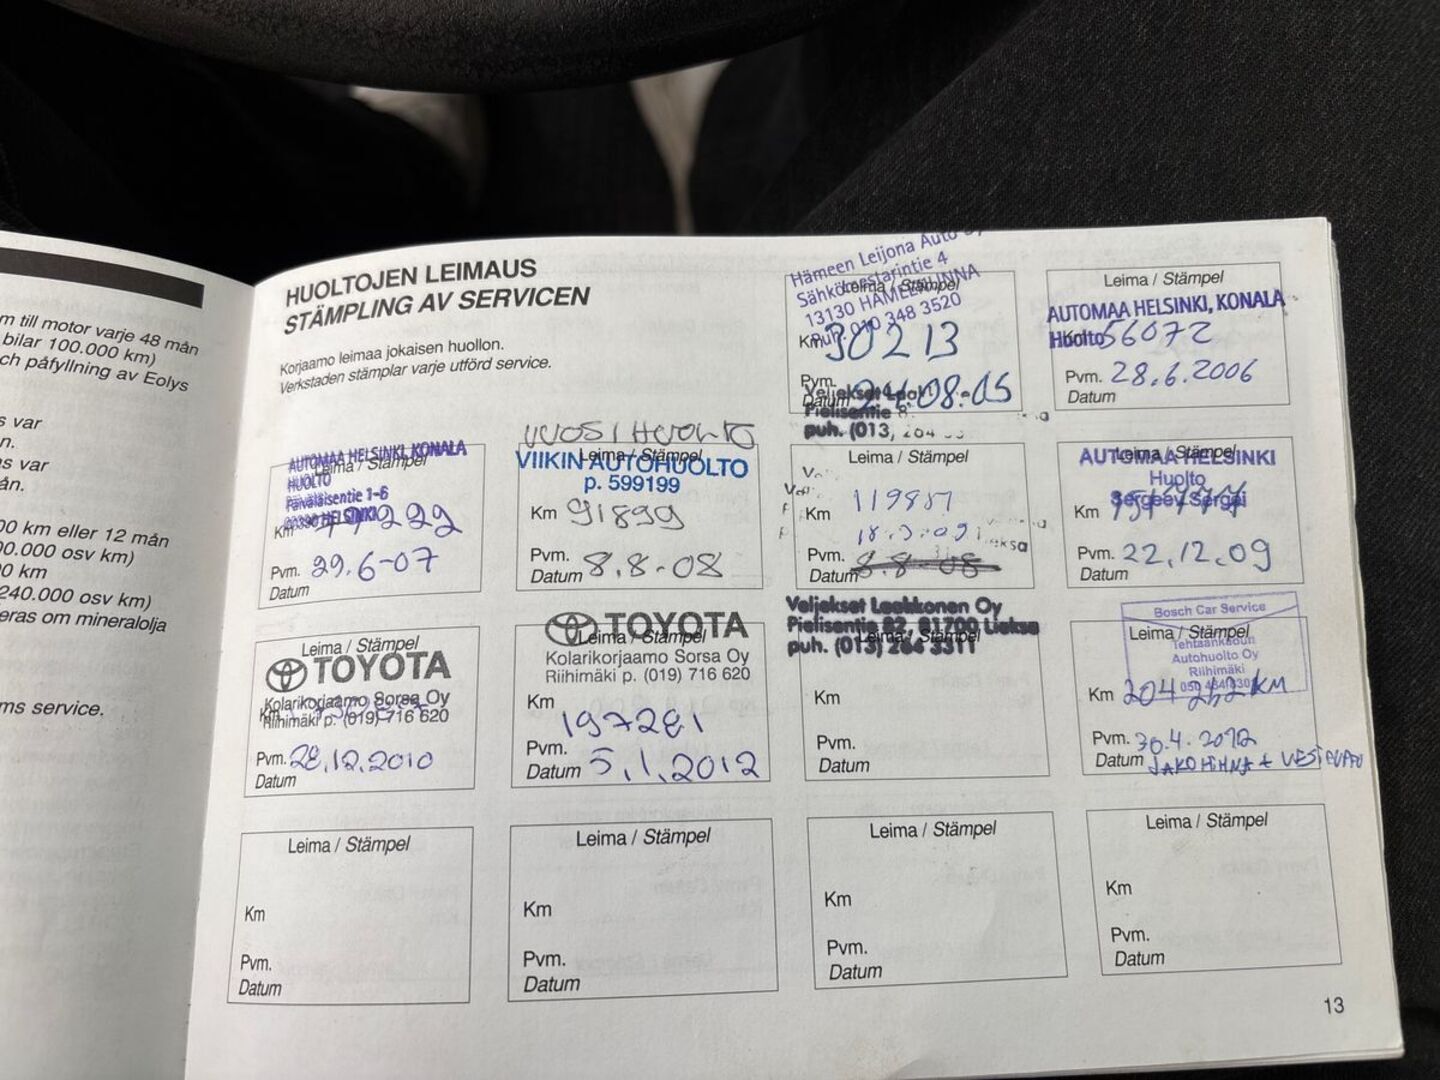 m till motor varje 48 mån
bilar 100.000 km)
ch påfyllning av Eolys
s var
n.
as var
ån.
00 km eller 12 mån
00.000 osv km)
00 km
240.000 osv km)
eras om mineralolja
ms service.
HUOLTOJEN LEIMAUS
STÄMPLING AV SERVICEN
Korjaamo leimaa jokaisen huollon.
Verkstaden stämplar varje utförd service.
Hämeen Leijona Auto Oy
Sähkölestarintie 4
Leima / Stämpel
13130 HÄMEENLINNA
Puh. 010 348 3520
Km 30213
Pvm.
Datum 24.08.05
Pielisentie
puh. (013)
Leima / Stämpel
AUTOMAA HELSINKI, KONALA
Huolto
Km 56072
Pvm. 28.6.2006
Datum
AUTOMAA HELSINKI, KONALA
Leima / Stämpel
HUOLTO
Päiväläisentie 1-6
HELSINKI
Km
Pvm. 29.6-07
Datum
VUOSIHUOLTO
Leima / Stämpel
VIIKIN AUTOHUOLTO
p. 599199
Km 91899
Pvm. 8.8-08
Datum
Leima / Stämpel
Km
Pvm.
Datum 8.8-08
Leima / Stämpel
AUTOMAA HELSINKI
Huolto
Sergeev Sergei
Km
Pvm. 22.12.09
Datum
Leima / Stämpel
TOYOTA
Kolarikorjaamo Sorsa Oy
Riihimäki p. (019) 716 620
Km
Pvm. 28.12.2010
Datum
TOYOTA
Leima / Stämpel
Kolarikorjaamo Sorsa Oy
Riihimäki p. (019) 716 620
Km 197281
Pvm.
Datum 5.1.2012
Veljekset Laakkonen Oy
Pielisentie 82, 81700 Lieksa
Leima / Stämpel
puh. (013) 264 3311
Km
Pvm.
Datum
Bosch Car Service
Leima / Stämpel
Tehtaankadun
Autohuolto Oy
Riihimäki
Km
Pvm. 30.4.2012
Datum JAKOHIHNA + VESIPUMPPU
Leima / Stämpel
Km
Pvm.
Datum
Leima / Stämpel
Km
Pvm.
Datum
Leima / Stämpel
Km
Pvm.
Datum
Leima / Stämpel
Km
Pvm.
Datum
13